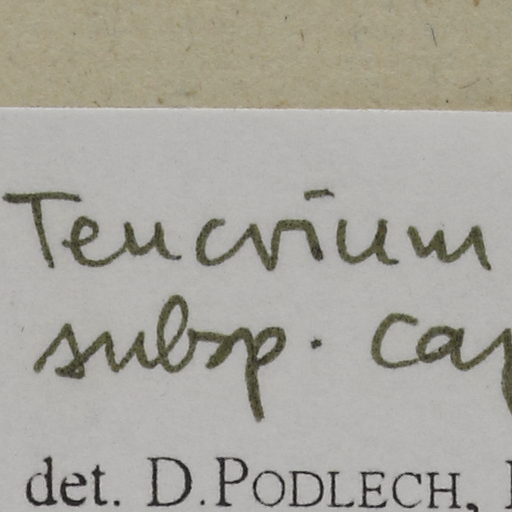 Teucrium
subsp. cap
det. D. PODLECH,